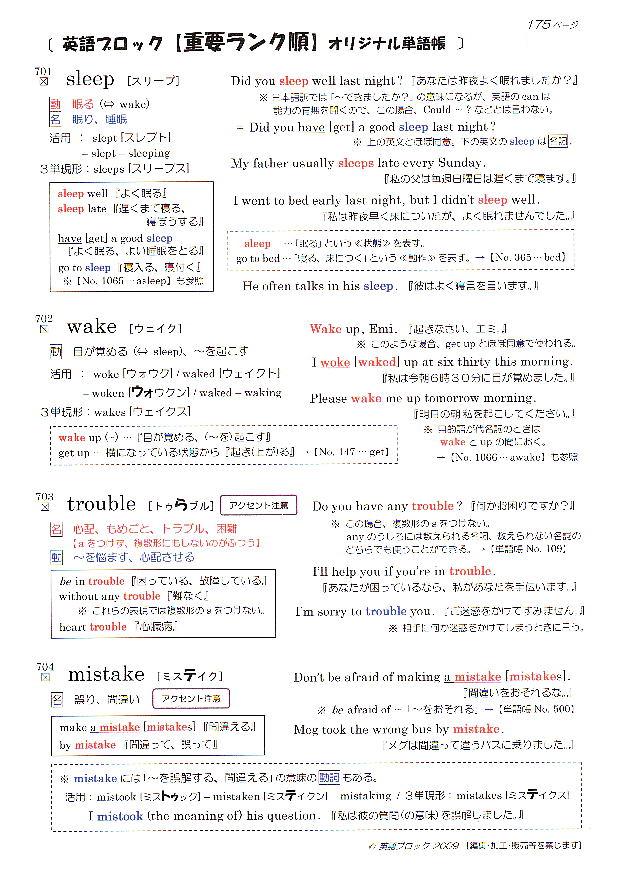 175ページ
〔 英語ブロック【重要ランク順】オリジナル単語帳 〕
701 sleep [スリープ]
動 眠る (⇔ wake)
名 眠り、睡眠
活用 : slept [スレプト]
– slept – sleeping
3単現形 : sleeps [スリープス]
sleep well 『よく眠る』
sleep late 『遅くまで寝る、
寝ぼうする』
have [get] a good sleep
『よく眠る、よい睡眠をとる』
go to sleep 『寝入る、寝付く』
※【No. 1065 …asleep】も参照
Did you sleep well last night? 『あなたは昨夜よく眠れましたか?』
※ 日本語訳では「～できましたか?」の意味になるが、英語の can は
能力の有無を聞くので、この場合、Could ～ ? などとは言わない。
= Did you have [get] a good sleep last night?
※ 上の英文とほぼ同意。下の英文の sleep は名詞。
My father usually sleeps late every Sunday.
『私の父は毎週日曜日は遅くまで寝ます。』
I went to bed early last night, but I didn't sleep well.
『私は昨夜早く床についたが、よく眠れませんでした。』
sleep …「眠る」という≪状態≫を表す。
go to bed …「寝る、床につく」という≪動作≫を表す。→【No. 365 …bed】
He often talks in his sleep. 『彼はよく寝言を言います。』
702 wake [ウェイク]
動 目が覚める (⇔ sleep)、～を起こす
活用 : woke [ウォウク] / waked [ウェイクト]
– woken [ウォウクン] / waked – waking
3単現形 : wakes [ウェイクス]
wake up (～) … 『目が覚める、(～を)起こす』
get up … 横になっている状態から『起き(上が)る』 →【No. 147 …get】
Wake up, Emi. 『起きなさい、エミ。』
※ このような場合、get up とほぼ同意で使われる。
I woke [waked] up at six thirty this morning.
『私は今朝6時30分に目が覚めました。』
Please wake me up tomorrow morning.
『明日の朝私を起こしてください。』
※ 目的語が代名詞のときは
wake と up の間におく。
→【No. 1066 …awake】も参照
703 trouble [トゥらブル] アクセント注意
名 心配、もめごと、トラブル、困難
【a をつけず、複数形にもしないのがふつう】
動 ～を悩ます、心配させる
be in trouble 『困っている、故障している』
without any trouble 『難なく』
※ これらの表現では複数形の s をつけない。
heart trouble 『心臓病』
Do you have any trouble? 『何かお困りですか?』
※ この場合、複数形の s をつけない。
any のうしろには数えられる名詞、数えられない名詞の
どちらでも使うことができる。→【単語帳 No. 109】
I'll help you if you're in trouble.
『あなたが困っているなら、私があなたを手伝います。』
I'm sorry to trouble you. 『ご迷惑をかけてすみません。』
※ 相手に何か迷惑をかけてしまうときに言う。
704 mistake [ミステイク]
名 誤り、間違い アクセント注意
make a mistake [mistakes] 『間違える』
by mistake 『間違って、誤って』
Don't be afraid of making a mistake [mistakes].
『間違いをおそれるな。』
※ be afraid of ～ 「～をおそれる」→【単語帳 No. 500】
Meg took the wrong bus by mistake.
『メグは間違って違うバスに乗りました。』
※ mistake には「～を誤解する、間違える」の意味の動詞もある。
活用 : mistook [ミストゥック] – mistaken [ミステイクン] – mistaking / 3単現形 : mistakes [ミステイクス]
I mistook (the meaning of) his question. 『私は彼の質問(の意味)を誤解しました。』
© 英語ブロック 2009 【編集・加工・販売等を禁じます】